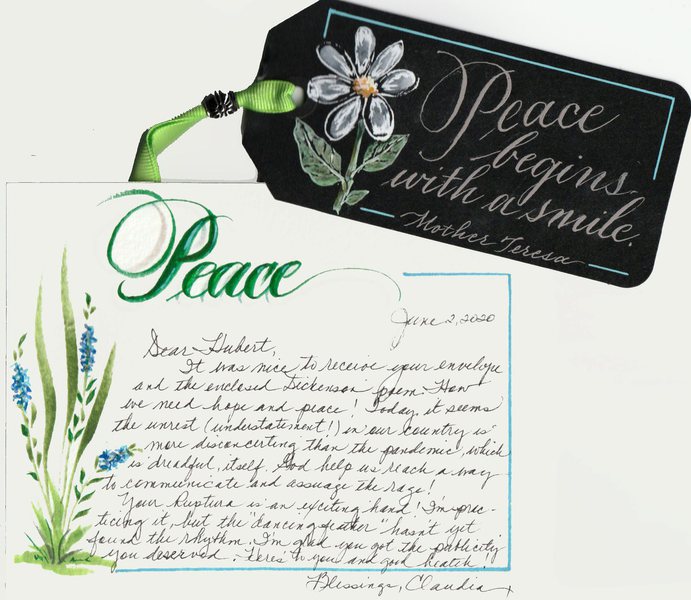 Peace
begins
with a smile.
Mother Teresa
Peace
June 2, 2020
Dear Hubert,
It was nice to receive your envelope
and the enclosed Dickenson poem. How
we need hope and peace! Today, it seems
the unrest (understatement!) in our country is
more disconcerting than the pandemic, which
is dreadful, itself. God help us reach a way
to communicate and assuage the rage!
Your Ruptura is an exciting hand! I'm prac-
ticing it, but the "dancing feather" hasn't yet
found the rhythm. I'm glad you got the publicity
you deserved. Here's to you and good health!
Blessings, Claudia